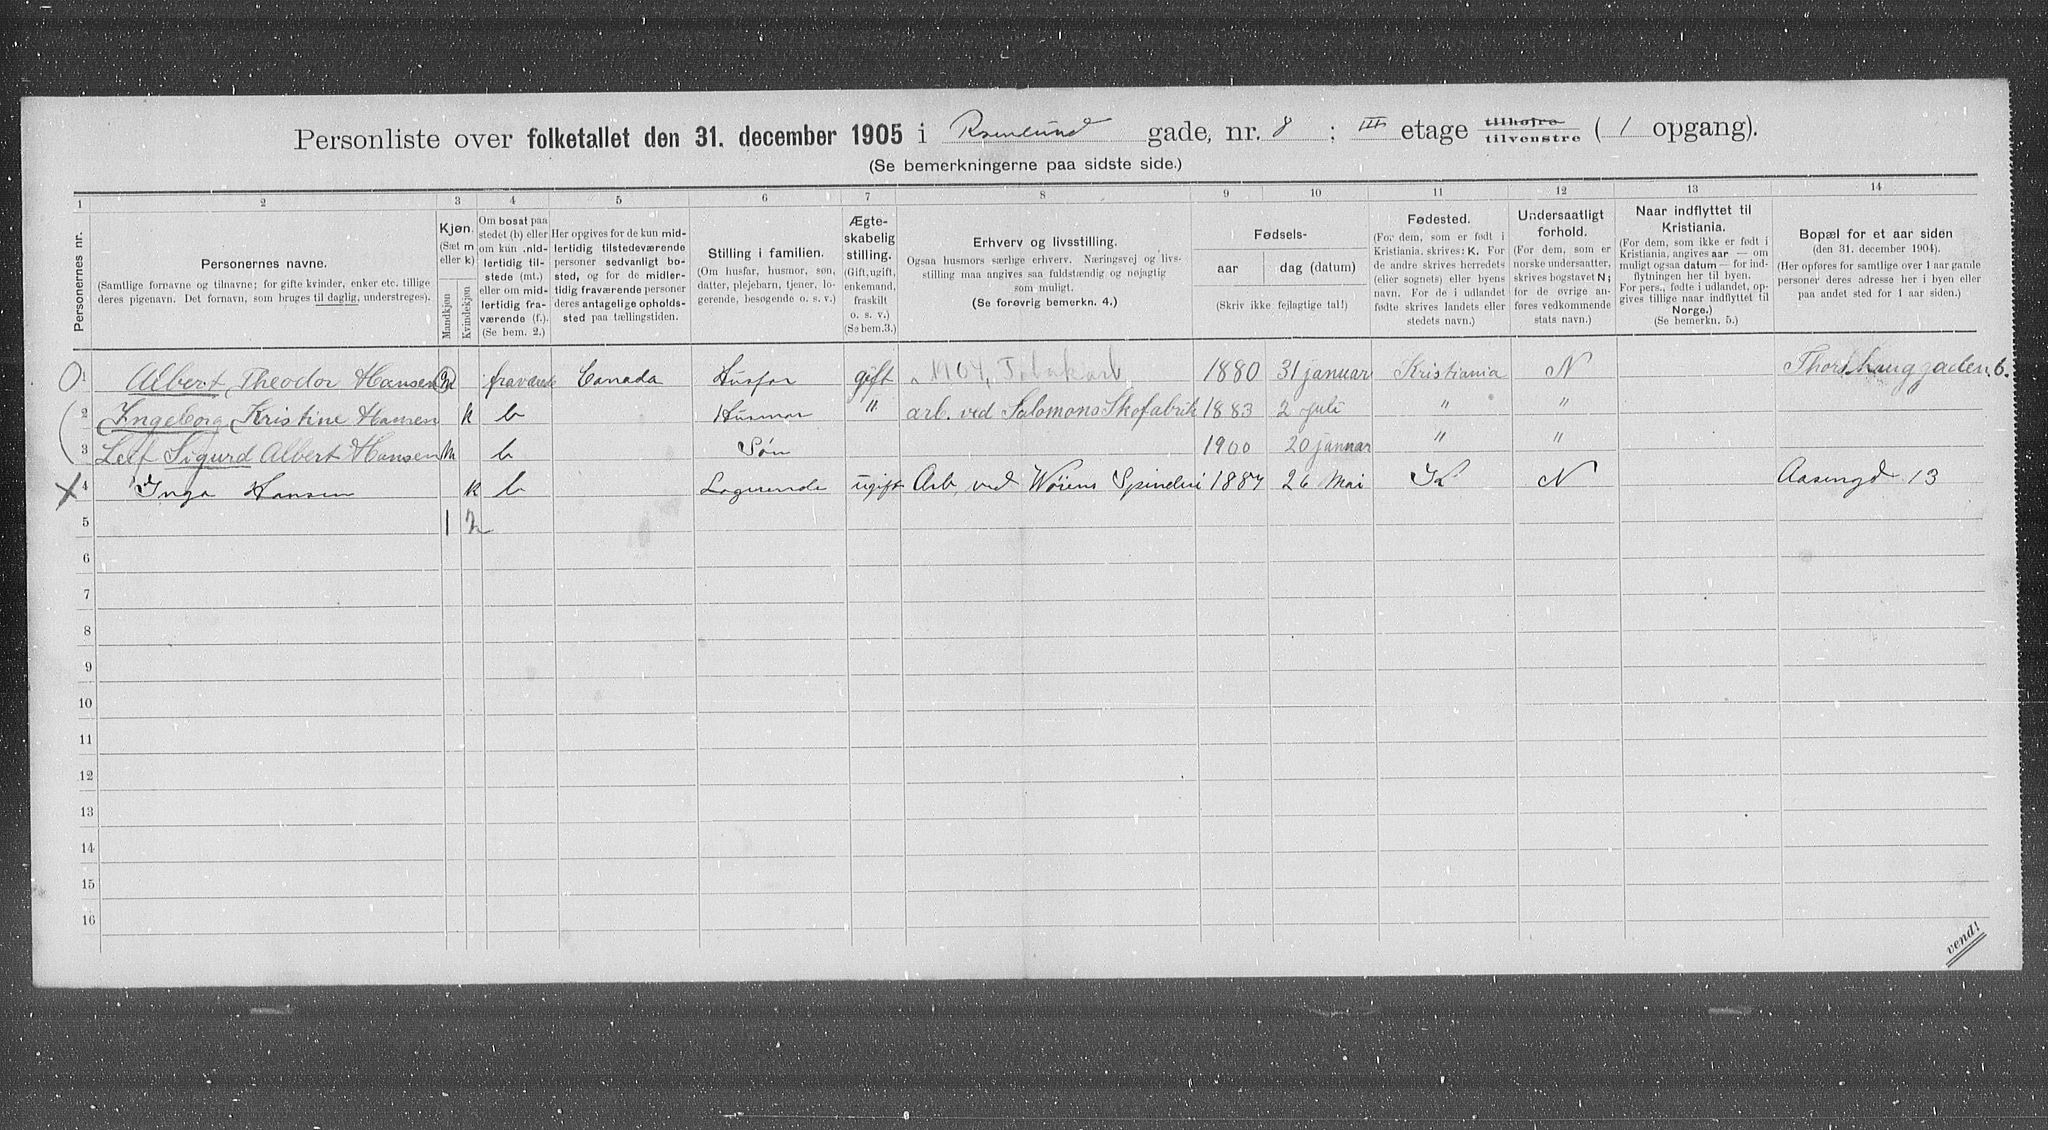 Personliste over folketallet den 31. december 1905 i Rosenlund gade, nr. 8 ; III etage tilhøjre tilvenstre ( 1 opgang).
(Se bemerkningerne paa sidste side.)
1 2 3 4 5 6 7 8 9 10 11 12 13 14
Personernes nr.
Personernes navne.
(Samtlige fornavne og tilnavne; for gifte kvinder, enker etc. tillige deres pigenavn. Det fornavn, som bruges til daglig, understreges).
Kjøn.
(Sæt m eller k)
Mandkjøn
Kvindekjøn
Om bosat paa stedet (b) eller om kun midlertidig tilstede (mt.) eller om midlertidig fraværende (f.). (Se bem. 2.)
Her opgives for de kun midlertidig tilstedeværende personer sedvanligt bosted, og for de midlertidig fraværende personer deres antagelige opholdssted paa tællingstiden.
Stilling i familien.
(Om husfar, husmor, søn, datter, plejebarn, tjener, logerende, besøgende o. s. v.)
Ægteskabelig stilling.
(Gift, ugift, enkemand, fraskilt o. s. v.)
(Se bem.3.)
Erhverv og livsstilling.
Ogsaa husmors særlige erhverv. Næringsvej og livsstilling maa angives saa fuldstændig og nøjagtig som muligt.
(Se forøvrig bemerkn. 4.)
Fødsels-
aar
dag (datum)
(Skriv ikke fejlagtige tal!)
Fødested.
(For dem, som er født i Kristiania, skrives: K. For de andre skrives herredets (eller sognets) eller byens navn. For de i udlandet fødte skrives landets eller stedets navn.)
Undersaatligt forhold.
(For dem, som er norske undersaatter, skrives bogstavet N; for de øvrige anføres vedkommende stats navn.)
Naar indflyttet til Kristiania.
(For dem, som ikke er født i Kristiania, angives aar — om muligt ogsaa datum — for indflytningen her til byen. For pers., fødte i udlandet, opgives tillige naar indflyttet til Norge.)
(Se bemerkn. 5.)
Bopæl for et aar siden
(den 31. december 1904).
(Her opføres for samtlige over 1 aar gamle personer deres adresse her i byen eller paa andet sted for 1 aar siden.)
1 Albert Theodor Hansen m fraværende Canada Husfar gift 1880 31 januar Kristiania N
2 Ingeborg Kristine Hansen k b Husmor " arb. ved Salomons Skofabrik 1883 2 juli " "
3 Leif Sigurd Albert Hansen m b Søn 1900 20 januar " "
4 Inga Hansen k b Logerende ugift Arb. ved Wøiens Spinderi 1887 26 Mai K N Aasengd 13
5 1 2
6
7
8
9
10
11
12
13
14
15
16
vend!